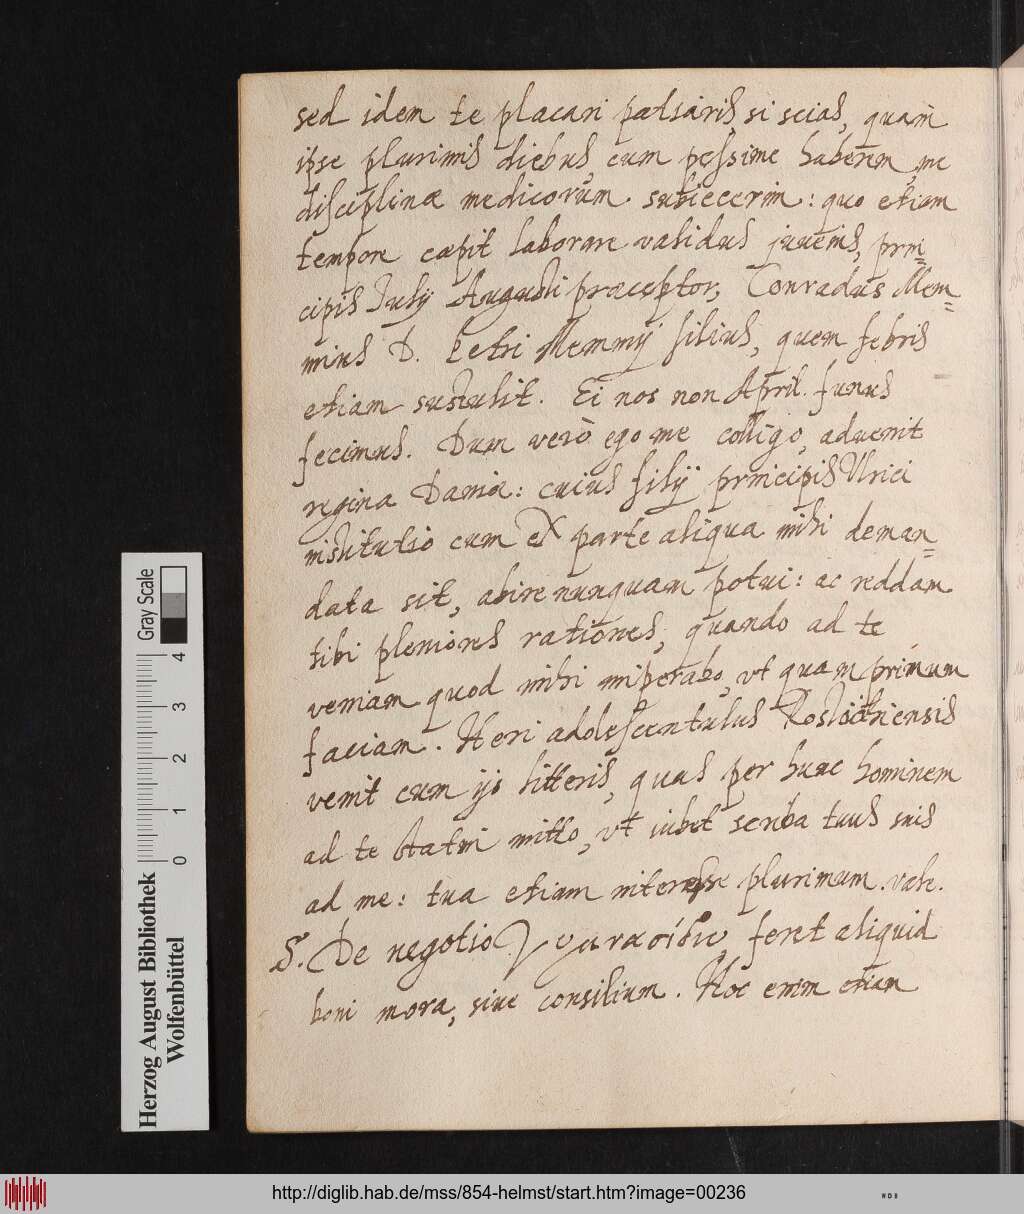 sed idem te placari patiaris, si scias, quam
ipse plurimis diebus, cum pessime haberem, me
disciplinæ medicorum subiecerim: quo etiam
tempore cæpit laborare validus juuenis, prin=
cipis Julij Augusti præceptor, Conradus Mem=
mius D. Petri Memmij filius, quem febris
etiam sustulit. Ei nos non April. funus
fecimus. Dum verò ego me colligo, aduenit
regina Daniæ: cuius filij principis Ulrici
institutio cum ex parte aliqua mihi deman=
data sit, abire nunquam potui: ac reddam
tibi pleniores rationes, quando ad te
veniam quod mihi imperabo, vt quam primum
faciam. Heri adolescentulus Rostochiensis
venit cum ijs litteris, quas per hunc hominem
ad te statim mitto, vt iubet scriba tuus suis
ad me: tua etiam interesse plurimum. vale.
De negotio feret aliquid
boni mora, siue consilium. Hoc enim etiam
Gray Scale
4
3
2
1
0
Herzog August Bibliothek
Wolfenbüttel
http://diglib.hab.de/mss/854-helmst/start.htm?image=00236
WDB